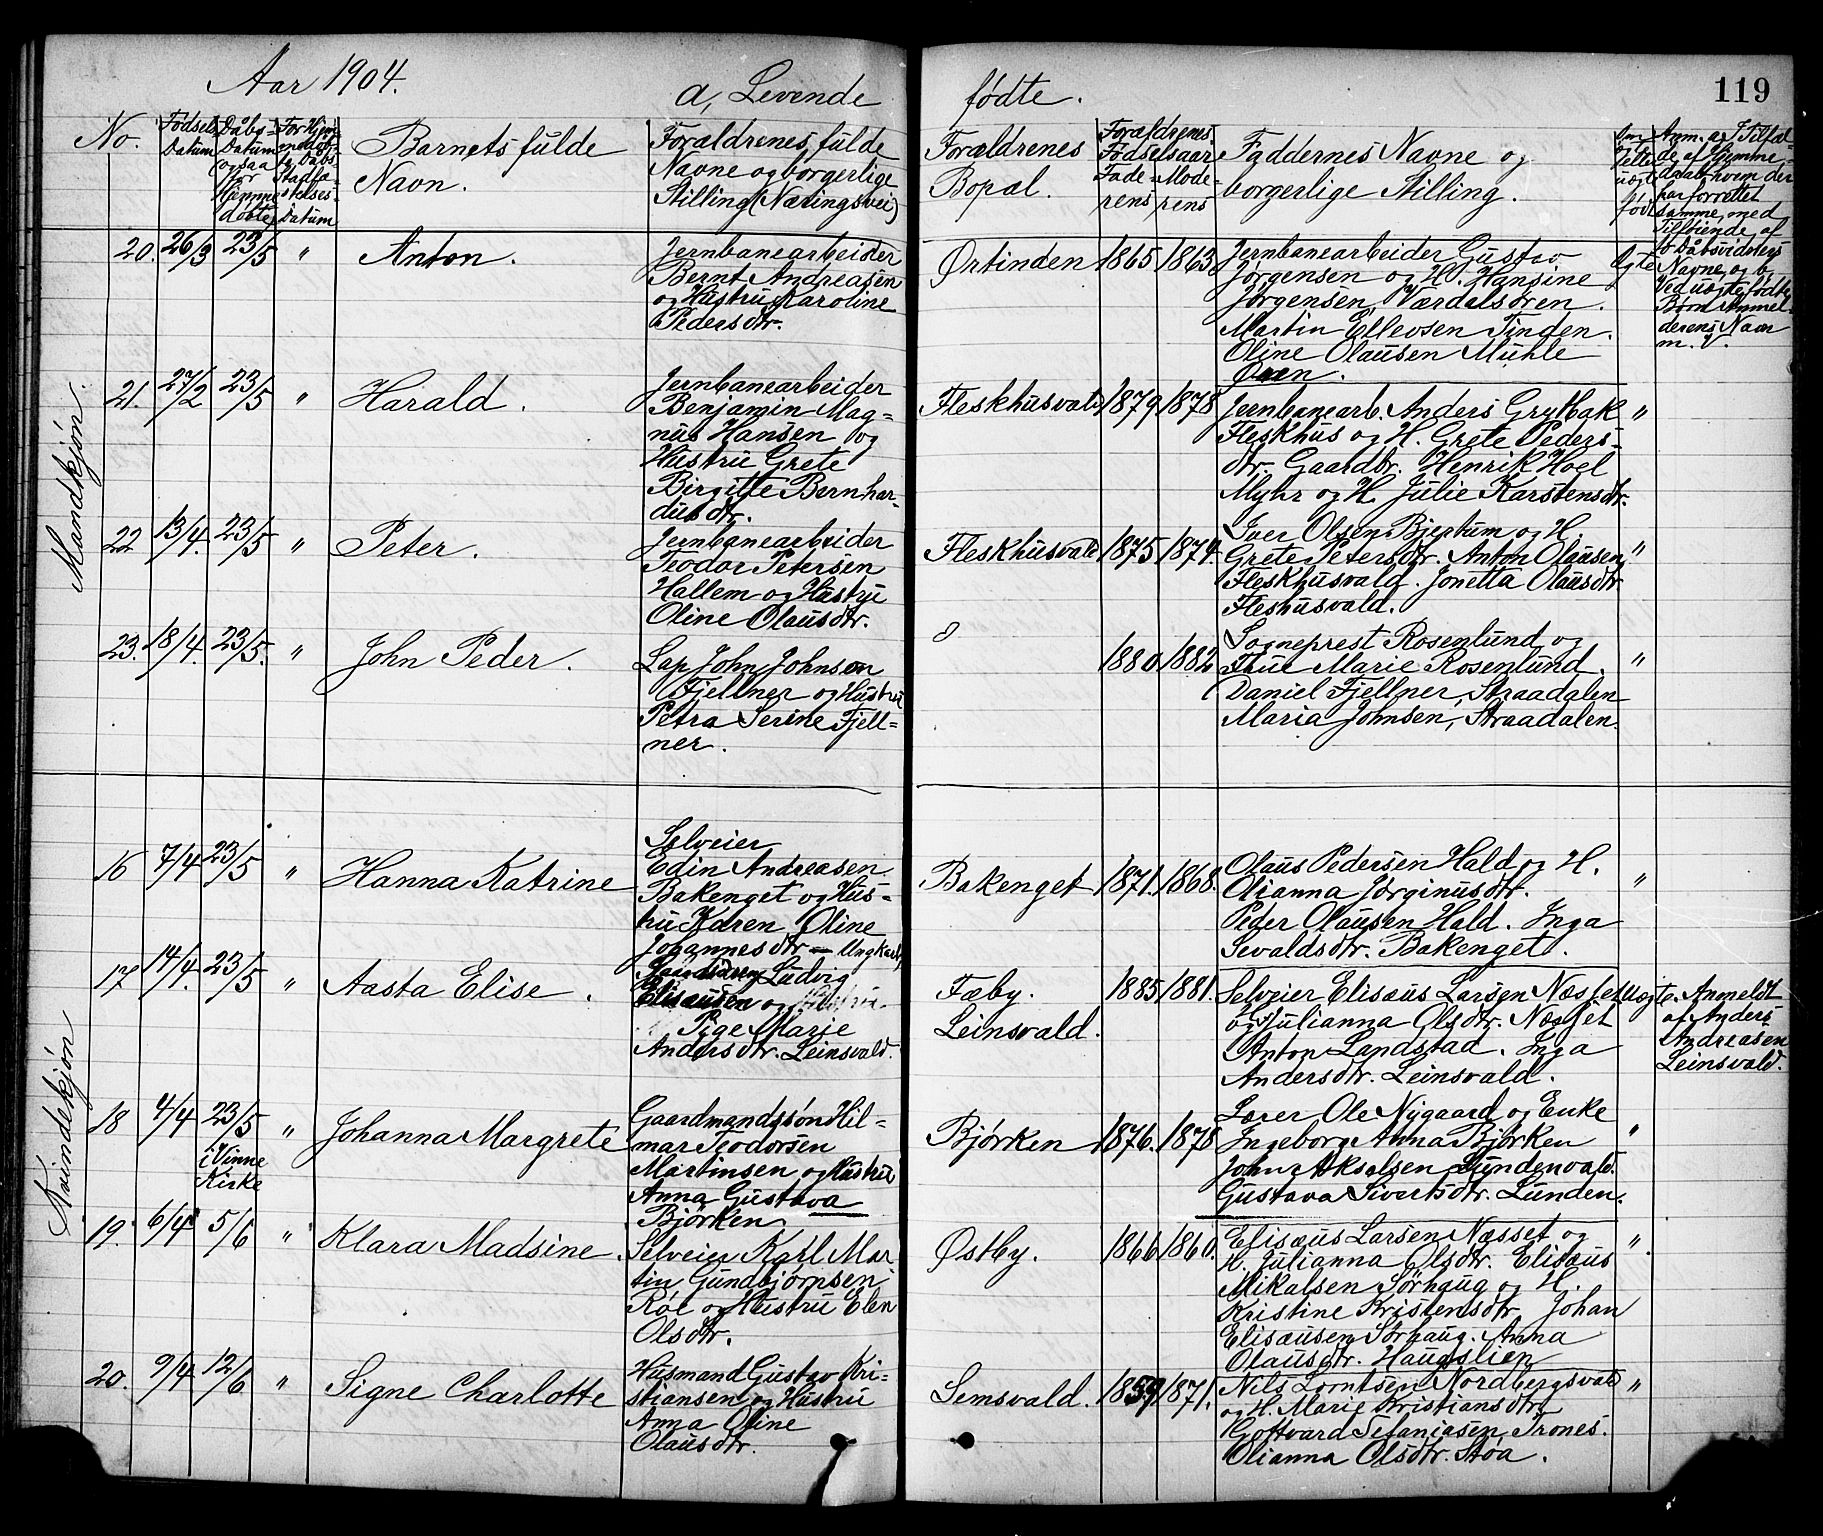 Aar 1904. a, Levende fødte. 119
No.
Fødsels
Datum
Dåbs-
Datum
ogsaa
for
Hjemme
døbte
For Hjem-
medøb-
te Dåbs
Stadfæ-
stelses-
Datum
Barnets fulde
Navn.
Forældrenes fulde
Navne og borgerlige
Stilling (Næringsvei)
Forældrenes
Bopæl.
Forældrenes
Fødselsaar
Fade-
rens
Mode-
rens
Faddernes Navne og
borgerlige Stilling.
Om
ægte
uægte
født
Anm. og I Tilfæl-
de af Hjemme-
daab hvem der
har forrettet
samme, med
Tilføiende af
to Dåbsvidners
Navne, og b,
Ved uægte fødte
Børn Anmel-
derens Navn
m. V.
Mandkjøn.
20. 26/3 23/5 " Anton.
Jernbanearbeider
Bernt Andreasen
og Hustru Karoline
Pedersdtr.
Ørtinden 1865 1863
Jernbanearbeider Gustav
Jørgensen og H. Hansine
Jørgensen Værdalsøren.
Martin Ellevsen Tinden.
Oline Olausen Mühle
Øren.
Ægte
21. 27/2 23/5 " Harald.
Jernbanearbeider
Benjamin Mag-
nus Hansen og
Hustru Grete
Birgitte Bernhar-
dusdtr.
Fleskhusvald 1879 1878
Jernbanearb. Anders Grytbak
Fleskhus og H. Grete Peders-
dtr. Gaardbr. Henrik Hoel
Myhr og H. Julie Karstensdtr.
"
22 13/4. 23/5 " Peter.
Jernbanearbeider
Teodor Petersen
Hallem og Hustru
Oline Olausdtr.
Fleskhusvald 1875 1874.
Iver Olsen Bjertum og H.
Grete Petersdtr. Anton Olausen
Fleskhusvald. Jonetta Olausdtr
Fleshusvald.
"
23. 18/4. 23/5. " John Peder.
Lap John Johnson
Fjellner og Hustru
Petra Serine Fjell-
ner.
1880 1882
Sogneprest Rosenlund og
Frue Marie Rosenlund.
Daniel Fjellner, Straadalen
Maria Johnsen, Straadalen.
"
Kvindekjøn
16 7/4 23/5 " Hanna Katrine
Selveier
Edin Andreasen
Bakenget og Hus-
tru Karen Oline
Johannesdtr
Bakenget 1871. 1868.
Olaus Pedersen Hald og H.
Olianna Jørginusdtr.
Peder Olausen Hald. Inga
Sevaldsdtr. Bakenget.
"
17 14/4. 23/5 " Aasta Elise.
Ungkarl,
Ludvig
Elisæusen og
Pige Marie
Andersdtr. Leinsvald.
Fæby.
Leinsvald.
1885 1881.
Selveier Elisæus Larsen Næsset
og Julianna Olsdtr. Næsset
Anton Landstad. Inga
Andersdtr. Leinsvald.
Uægte.
Anmeldt
af Anders
Andreasen
Leinsvald.
18 4/4 23/5
i Vinne
Kirke
" Johanna Margrete
Gaardmandssøn Hil-
mar Teodorsen
Martinsen og Hustru
Anna Gustava
Bjørken
Bjørken 1876. 1878
Lærer Ole Nygaard og Enke
Ingeborg Anna Bjørken
John Akselsen Lundenvald.
Gustava Sivertsdtr. Lunden.
"
19. 6/4 5/6 " Klara Madsine.
Selveier Karl Mar
tin Gundbjørnsen
Röe og Hustru Elen
Olsdtr.
Østby. 1866 1860.
Elisæus Larsen Næsset og
H. Julianna Olsdtr. Elisæus
Mikalsen Sørhaug og H.
Kristine Kristensdtr. Johan
Elisæusen Sørhaug. Anna
Olausdtr. Haugslien
".
20. 9/4 12/6 " Signe Charlotte
Husmand Gustav Kri-
stiansen og Hustru
Anna Oline
Olausdtr.
Semsvald. 1859 1871.
Nils Lorntsen Nordbergsvald
og H. Marie Kristiansdtr.
Gottvard Sefaniasen Trones.
Olianna Olsdtr. Støa.
"